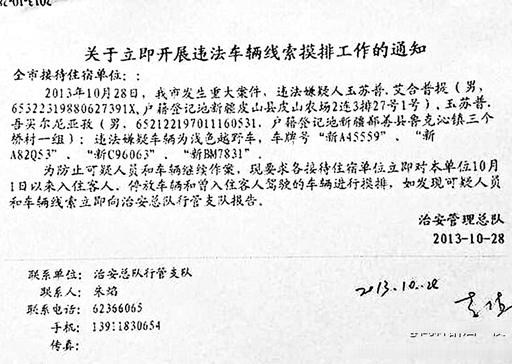 关于立即开展违法车辆线索摸排工作的通知
全市接待住宿单位：:
2013年10月28日，我市发生重大案件，违法嫌疑人玉苏普.艾合普提（男，
65322319880627391X，户籍登记地新疆皮山县皮山农场2连3排27号1号）、玉苏普.
吾买尔尼亚孜（男，652122197011160531，户籍登记地新疆鄯善县鲁克沁镇三个
桥村一组）；违法嫌疑车辆为浅色越野车，车牌号“新A45559”、“新
A82Q53”、“新C96063”、“新BM7831”.
为防止可疑人员和车辆继续作案，现要求各接待住宿单位立即对本单位10月
1日以来入住客人、停放车辆和曾入住客人驾驶的车辆进行摸排，如发现可疑人员
和车辆线索立即向治安总队行管支队报告。
治安管理总队
2013-10-28
联系单位：治安总队行管支队
联系人：朱焰
联系电话：62366065
手机：13911830654
传真：
2013.10.28